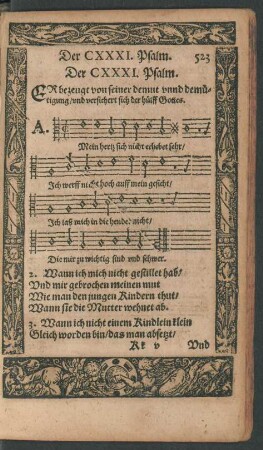 Der CXXXI. Psalm. 523
Der CXXXI. Psalm.
ER bezeugt von seiner demut vnnd demü-
tigung/vnd versichert sich der hülff Gottes.
A.
Mein hertz sich nicht erhebet sehr/
Ich werff nicht hoch auff mein gesicht/
Ich laß mich in die hendel nicht/
Die mir zu wichtig sind vnd schwer.
2. Wann ich mich nicht gestillet hab/
Vnd mir gebrochen meinen mut
Wie man den jungen Kindern thut/
Wann sie die Mutter wehnet ab.
3. Wann ich nicht einem Kindlein klein
Gleich worden bin/das man absetzt/
Kk v Vnd